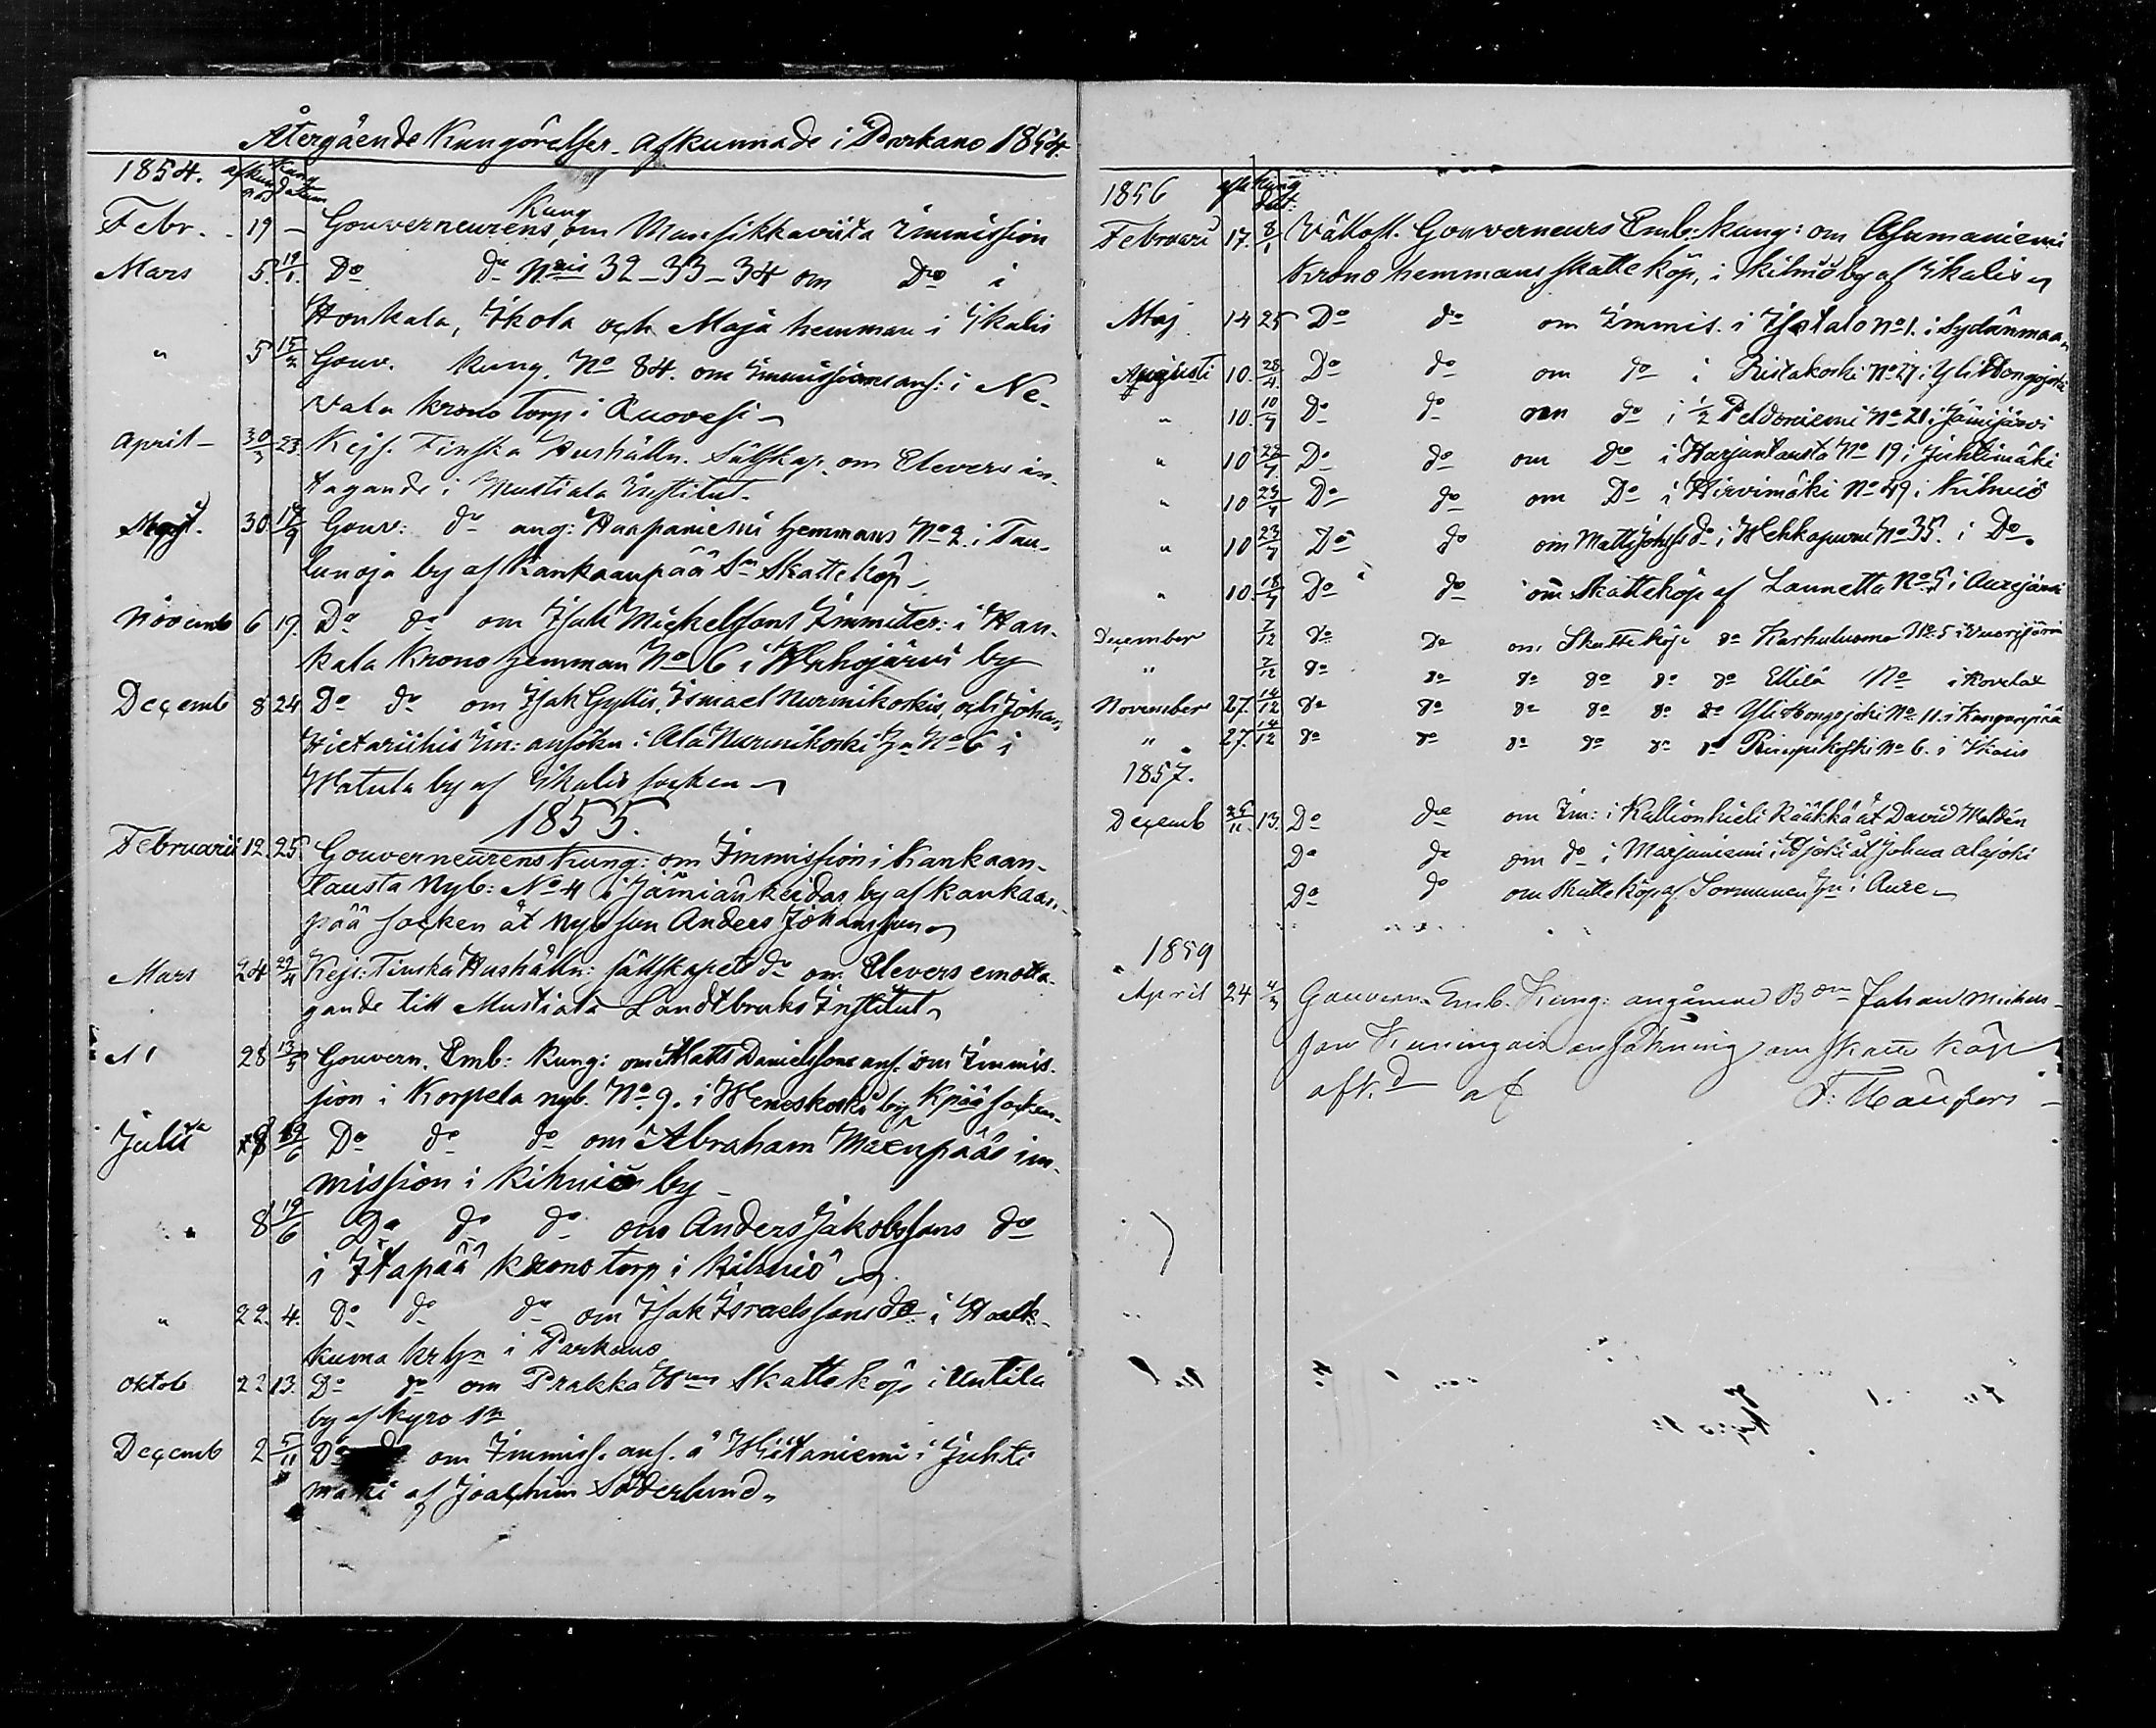 Återgående Kungörelser afkunnade i Parkano 1854.
1854. afkun nad Kung datum
Febr. 19 — Gouverneurens Kung om Mansikkaviita Immission
Mars 5. 19/1. Do do Nris 32–33–34 om Do i
Honkala, Ikola och Maja hemman i Ikalis
" 5 15/2 Gouv. kung. No 84. om Immissions ans: i Ne-
vala krono torp i Ruovesi
April 30/3 23 Kejs. Finska Hushålln. Sällskap. om Elevers in-
tagande i Mustiala Institut.
30 Gouv: do ang: Haapaniemi hemmans No 2. i
lunoja by af Kankaanpää Sn Skatteköp
Novemb 6 19. Do do om Michelssons Immitter: i Han-
kala Krono hemman No 6 i by
Decemb 8 24 Do do om Isak Gyllis, Ismael Nurmikoskis, och Johan
Hietariihis Im: ansökn i Ala Nurmikoski No 6 i
Watula by af Ikalis socken
1855.
Februarii 12. 25. Gouverneurens Kung: om Immission i Kankaan-
tausta Nyb: No 4 i Jämiänkeidas by af Kankaan-
pää socken åt Anders Johansson
Mars 24 Kejs: Finska Hushålln: sällskapets do om Elevers emotta-
gande till Mustiala Landtbruks Institut
28 13/3 Gouvern. Emb: Kung: om Matts Danielssons ans. om Immis-
sion i Korpela nyb. No 9. i Weneskoski by Kpää socken
Julii 8 19/6 Do do do om Abraham Mäenpääs im-
mission i Kihniö by
" 8 19/6 Do do do om Anders Jakobssons do
i Itapää Kronotorp i Kihniö
" 22. 4. Do do do om Isak Israelssons do i
kuma i Parkano
Oktob 22 13. Do do om Prakka Skatteköp i Untila
by af Kyro sn
Decemb 2 5/11 Do do om Immiss. ans. å Wiitaniemi i Juhti
mäki af Joachim Söderlund
1856 afk Kung dat:
Februari 17. 8/1 Gouverneurs Emb. kung: om
Krono hemmans skatteköp, i Kihniö by af Ikalis
Maj 14 25 Do do om Immis. i Isotalo No 1. i Sydänmaa
Augusti 10. 28/4. Do do om do i Ristakoski No 27 i Yli Hongojoki
" 10. 10/7 Do do om do i 1/2 Peldoniemi No 21 i Jämijärvi
" 10 22/7. Do do om do i Harjuntausta No 19 i Juhtimäki
" 10 23/7 Do do om Do i Hirvimäki No 49 i Kihniö
" 10 23/7 Do do om do i No 35. i Do
" 10. 18/7 Do do om Skatteköp af Launetta No 5 i Aurejärvi
December 7/12 do do om Skatteköp do Karhuluoma No 5 i
" 7/12 do do do do do do Ellilä No i Kovelax
November 27. 14/12 do do do do do do Yli Hongojoki No 11. i Kangaspää
" 27. 14/12 do do do do do do No 6. i Ikalis
1857.
Decemb 25/11. 13. Do do om Im: i Kallionkieli åt David
Do do om do i Marjaniemi i åt Johan Alajoki
Do do om Skatteköp af Sormunen i Aure
1859
April 24 4/3 Gouvern. Emb. Kung: angående Johan
son Kuningais ansökning om skatte köp
afk.d af F: